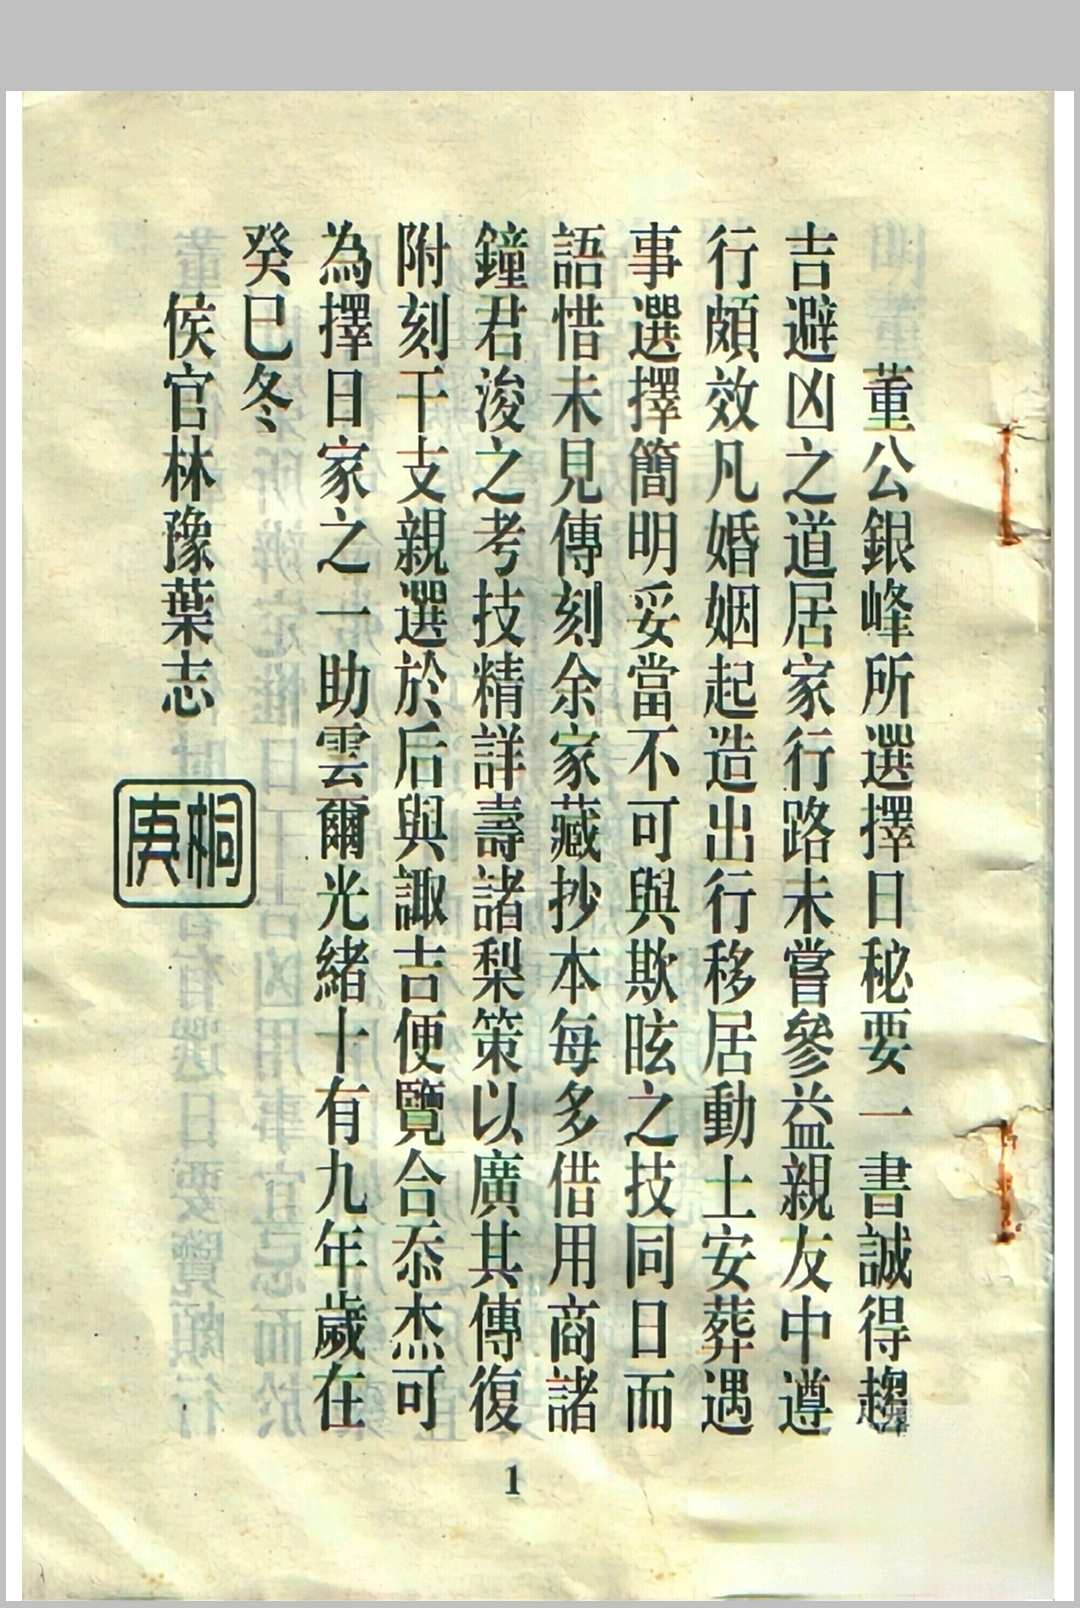 董公銀峰所選擇日秘要一書誠得趨
吉避凶之道居家行路未嘗參益親友中遵
行頗效凡婚姻起造出行移居動土安葬遇
事選擇簡明妥當不可與欺眩之技同日而
語惜未見傳刻余家藏抄本每多借用商諸
鐘君浚之考技精詳壽諸梨策以廣其傳復
附刻干支親選於后與諏吉便覽合忝杰可
為擇日家之一助雲爾光緒十有九年歲在
癸巳冬
侯官林豫葉志
桐庚
1